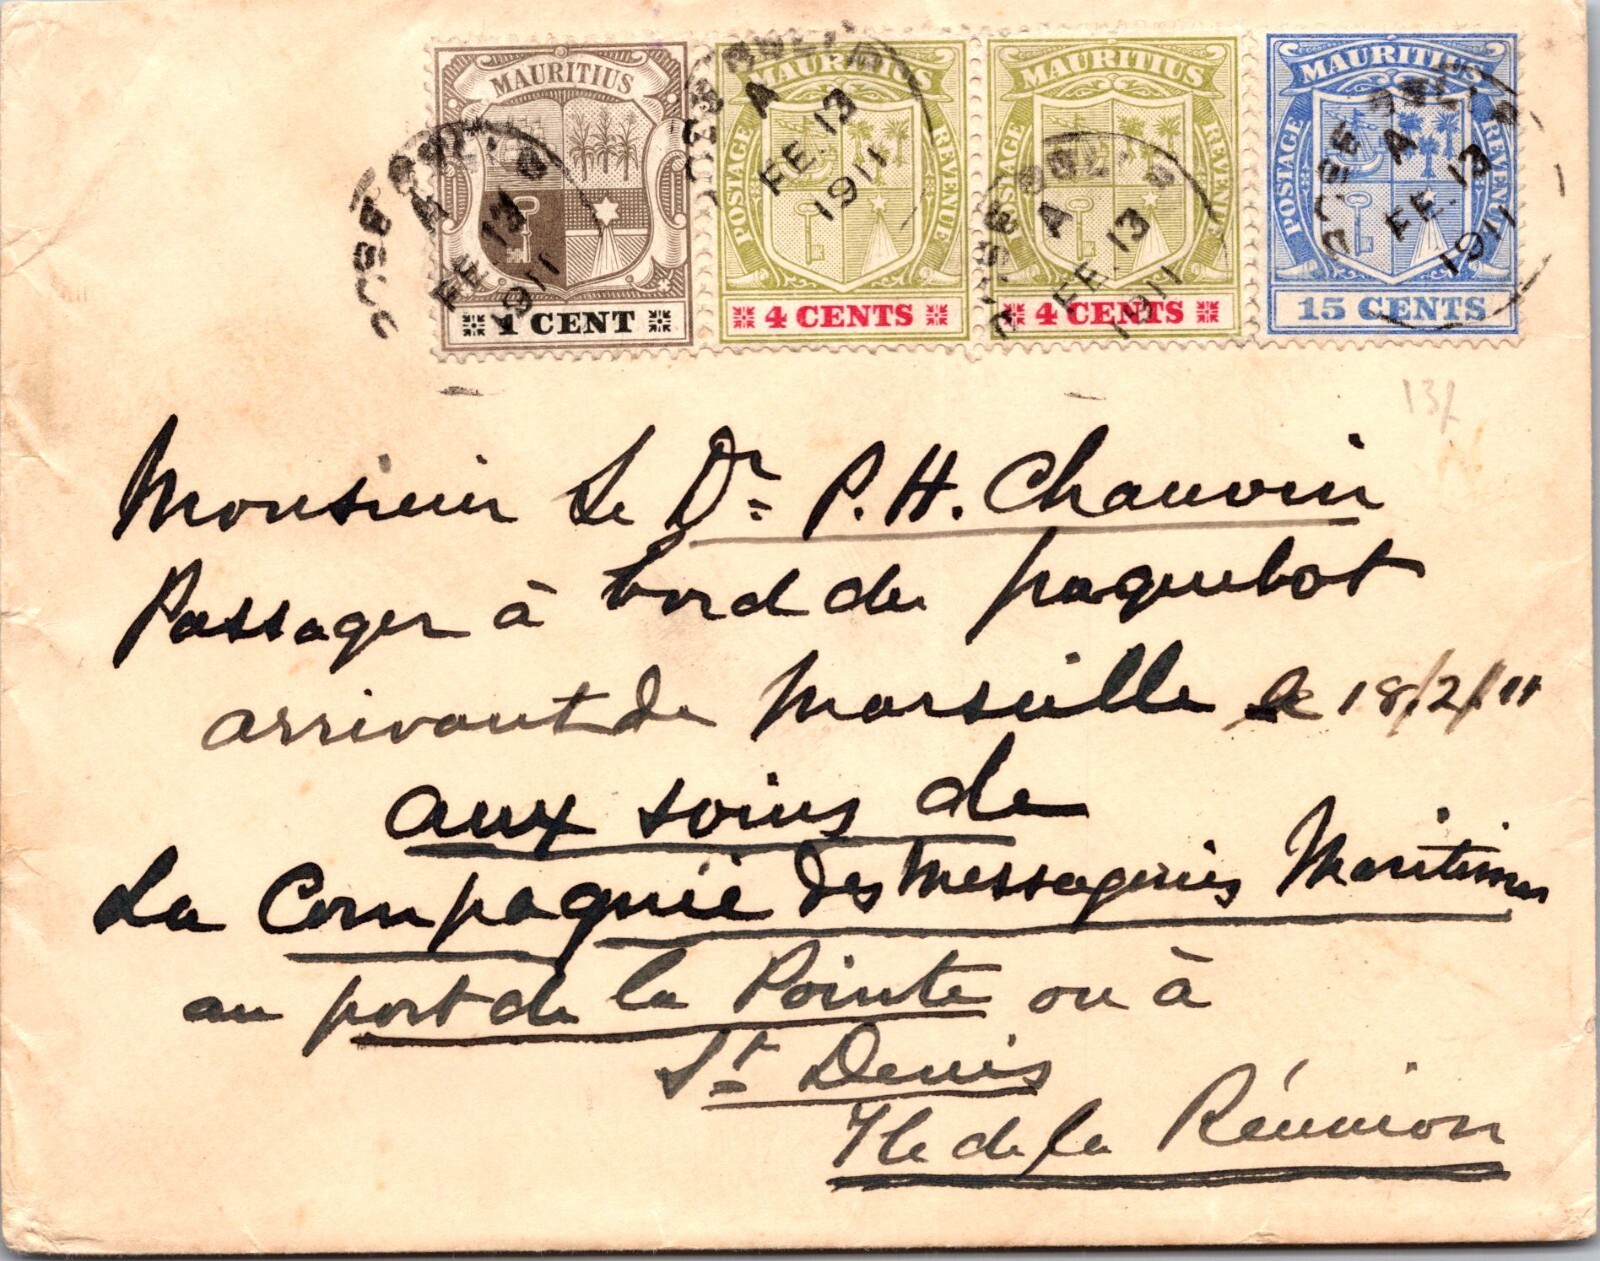 MAURITIUS
1 CENT
MAURITIUS
POSTAGE REVENUE
4 CENTS
MAURITIUS
POSTAGE REVENUE
4 CENTS
MAURITIUS
POSTAGE REVENUE
15 CENTS
ROSE BELLE
A
FE 13
1911
ROSE BELLE
A
FE. 13
1911
ROSE BELLE
A
FE. 13
1911
ROSE BELLE
A
FE. 13
1911
Monsieur Le Dr. P. H. Chauvin
Passager à bord du paquebot
arrivant de Marseille le 18/2/11
aux soins de
La Compagnie des Messageries Maritimes
au port de la Pointe ou à
St Denis
Ile de la Réunion